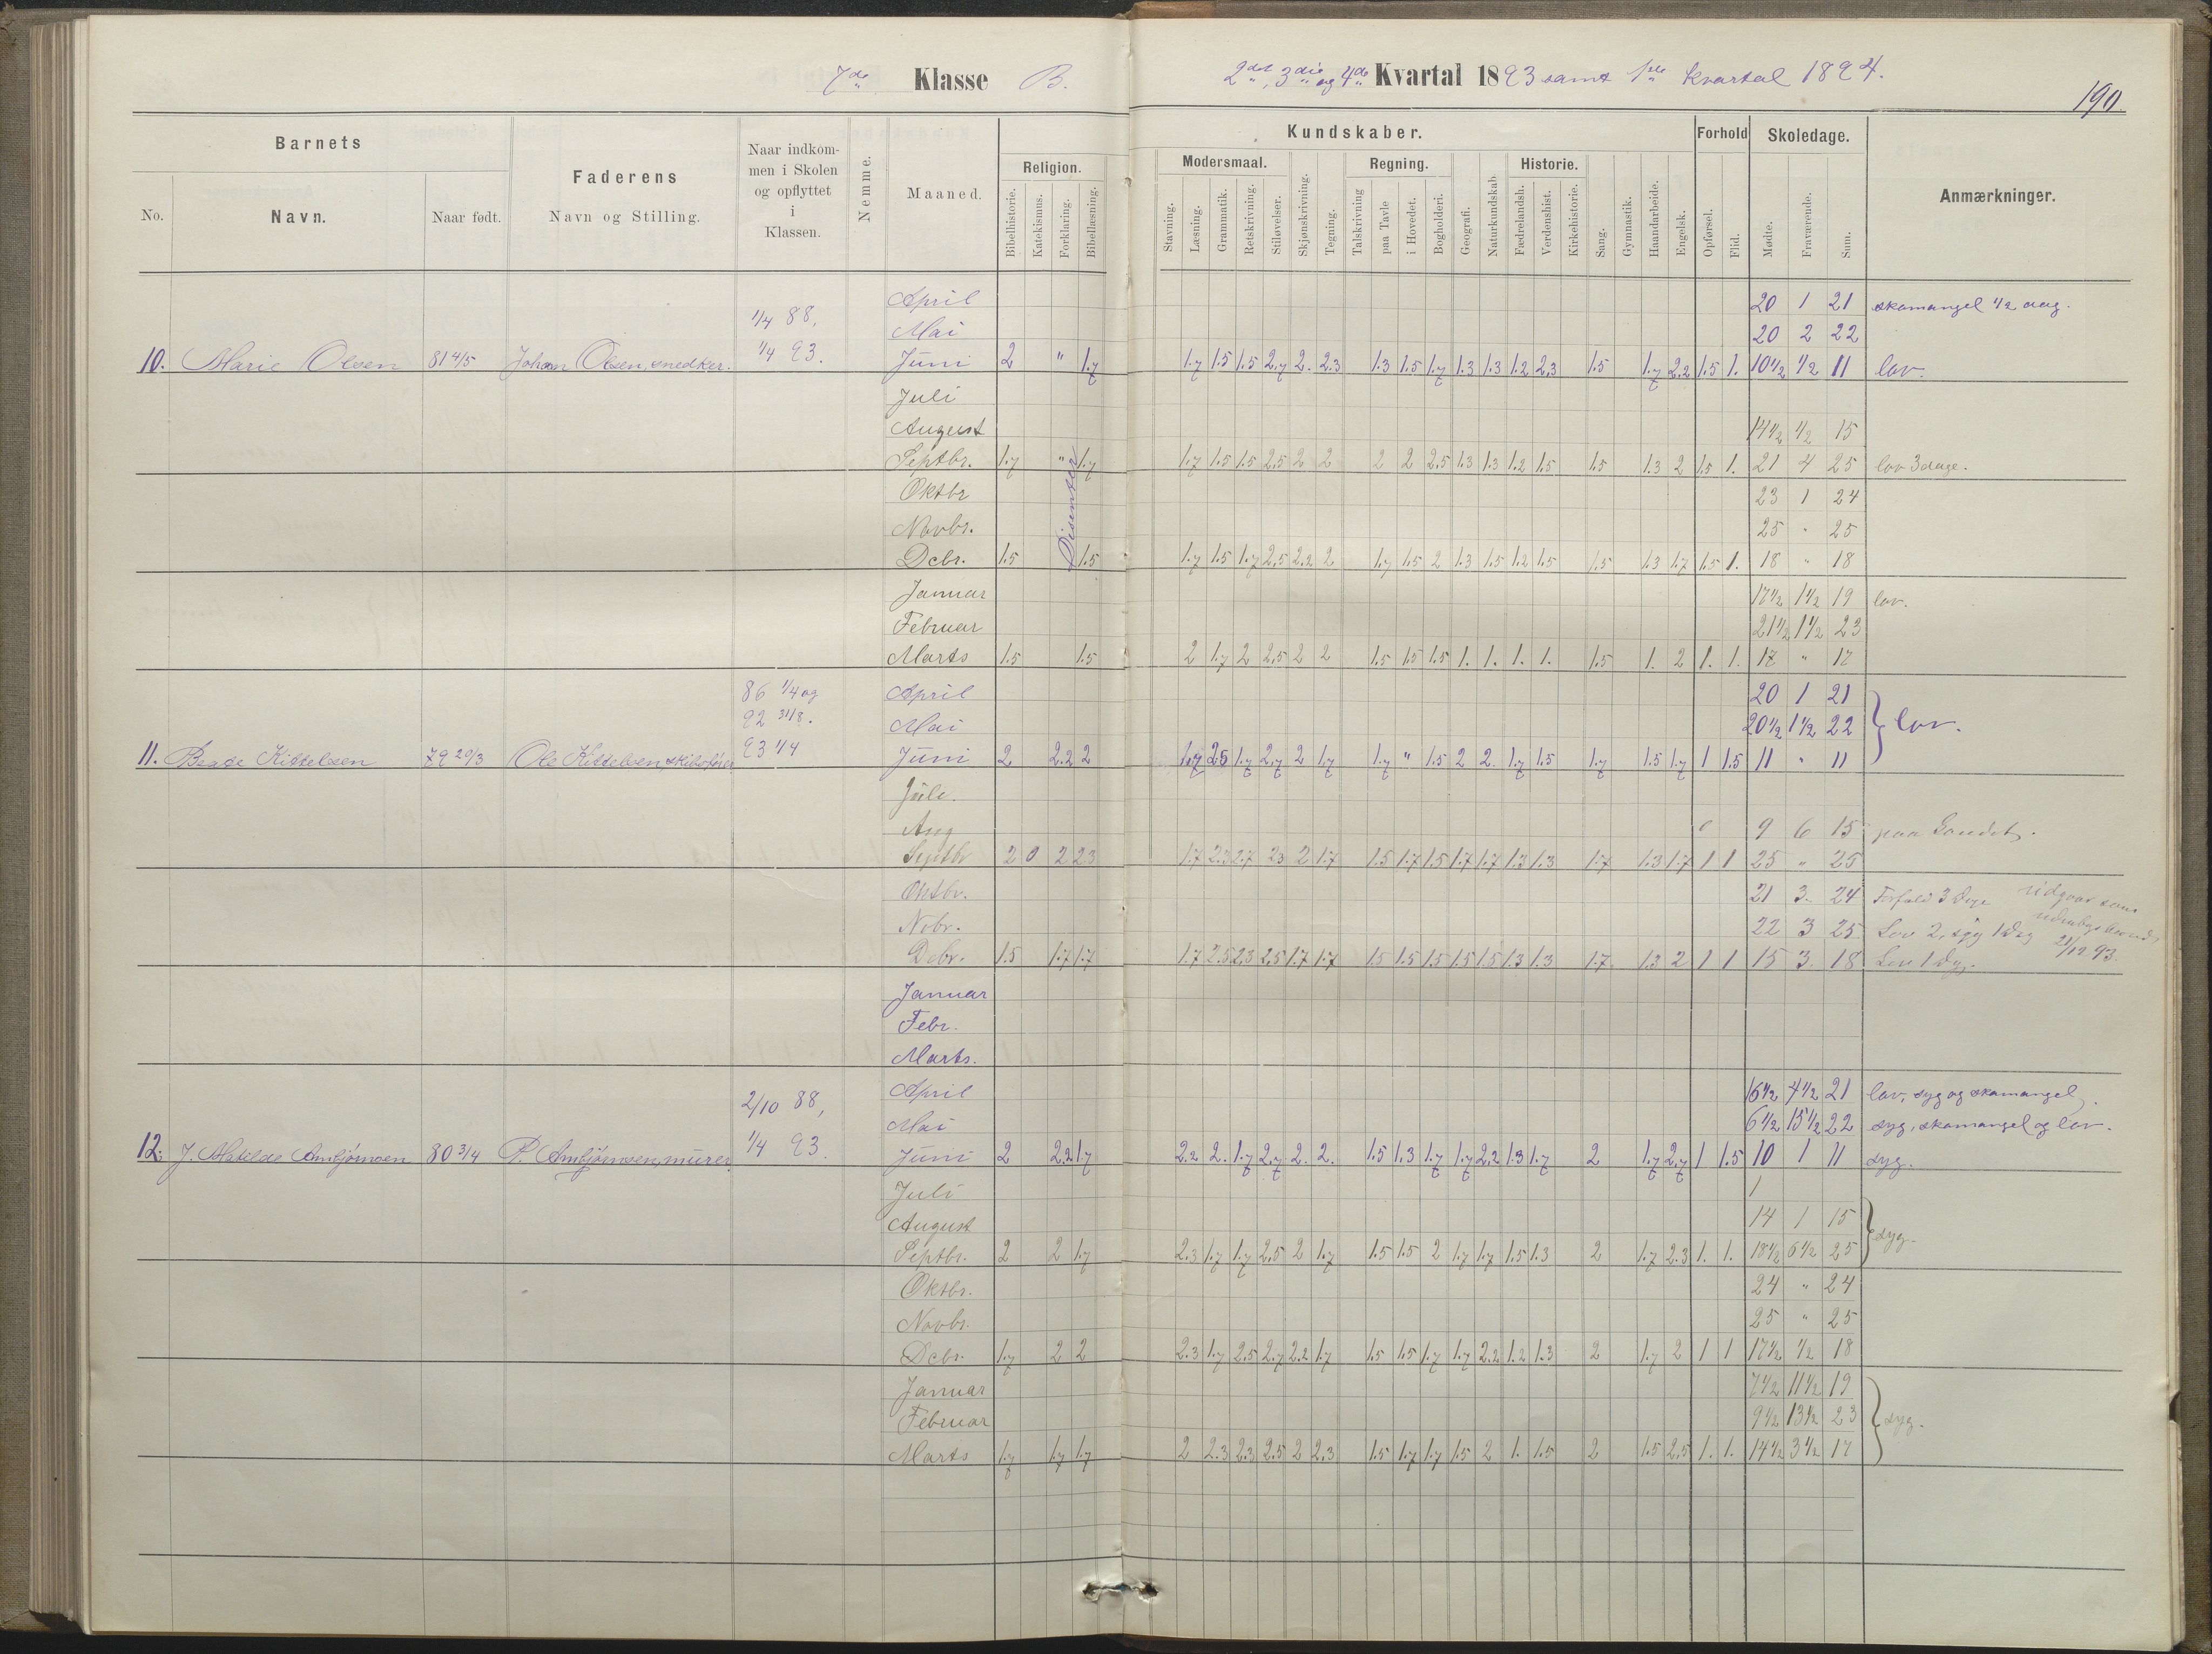 7de Klasse B.
2det, 3die og 4de Kvartal 1893 samt 1ste Kvartal 1894.
190
Barnets
No.
Navn.
Naar født.
Faderens
Navn og Stilling.
Naar indkom-
men i Skolen
og opflyttet
i
Klassen.
Nemme.
Maaned.
Kundskaber.
Religion.
Bibelhistorie.
Katekismus.
Forklaring.
Bibellæsning.
Modersmaal.
Stavning.
Læsning.
Grammatik.
Retskrivning.
Stiløvelser.
Skjønskrivning.
Tegning.
Regning.
Talskrivning
paa Tavle
i Hovedet.
Bogholderi.
Geografi.
Naturkundskab
Historie.
Fædrelandsh.
Verdenshist.
Kirkehistorie.
Sang.
Gymnastik.
Haandarbeide.
Engelsk.
Forhold
Opførsel.
Flid.
Skoledage.
Mødte.
Fraværende.
Sum.
Anmærkninger.
1/4 88, April 20 1 21 skomangel 1/2 dag.
Mai 20 2 22
10. Marie Olsen 81 4/5 Johan Olsen, snedker. 1/4 93. Juni 2 " 1.7 1.7 1.5 1.5 2.7 2. 2.3 1.3 1.5 1.7 1.3 1.3 1.2 2.3 1.5 1.7 2.2 1.5 1. 10 1/2 1/2 11 lov.
Juli
August 14 1/2 1/2 15
Septbr. 1.7 " 1.7 1.7 1.5 1.5 2.5 2 2 2 2 2.5 1.3 1.3 1.2 1.5 1.5 1.3 2 1.5 1. 21 4 25 lov 3 dage.
Dissenter
Oktbr 23 1 24
Novbr. 25 " 25
Dcbr. 1.5 1.5 1.7 1.5 1.7 2.5 2.2 2 1.7 1.5 2 1.3 1.5 1.2 1.5 1.5 1.3 1.7 1.5 1. 18 " 18
Januar 17 1/2 1 1/2 19 lov.
Februar 21 1/2 1 1/2 23
Marts 1.5 1.5 2 1.7 2 2.5 2 2 1.5 1.5 1.5 1. 1. 1. 1. 1.5 1. 2 1. 1. 17 " 17
86 1/4 og April 20 1 21
92 31/8. Mai 20 1/2 1 1/2 22 lov.
11. Beate Kittelsen 79 20/3 Ole Kittelsen, skibsfører 93 1/4 Juni 2 2.2 2 1.7 2.5 1.7 2.7 2 1.7 1.7 " 1.5 2 2. 1.7 1.5 1.7 1.5 1.7 1 1.5 11 " 11
Juli.
Aug 9 6 15 paa Landet.
Septbr 2 0 2 2.3 1.7 2.3 2.7 2.3 2 1.7 1.5 1.7 1.5 1.7 1.7 1.3 1.3 1.7 1.3 1.7 1 1 25 " 25
Oktbr. 21 3 24 Forfald 3 Dage
Nobr. 22 3 25 Lov 2, syg 1 Dag
udgaar som
21/12 93.
Dcbr. 1.5 1.7 1.7 1.7 2.5 2.3 2.5 1.7 1.7 1.5 1.5 1.5 1.5 1.5 1.3 1.3 1.7 1.3 2 1 1 15 3 18 Lov 1 Dag.
Januar
Febr.
Marts.
2/10 88, April 16 1/2 4 1/2 21 lov, syg og skomangel.
Mai 6 1/2 15 1/2 22 syg, skomangel og lov.
12. J. Matilde Ambjørnsen 80 3/4 P. Ambjørnsen, murer 1/4 93. Juni 2 2.2 1.7 2.2 2. 1.7 2.7 2. 2. 1.5 1.3 1.7 1.7 2.2 1.3 1.7 2 1.7 2.7 1 1.5 10 1 11 syg.
Juli
August 14 1 15
Septbr. 2 2 1.7 2.3 1.7 1.7 2.5 2 1.7 1.5 1.5 2 1.7 1.7 1.5 1.3 2 1.7 2.3 1. 1. 18 1/2 6 1/2 25 syg.
Oktbr. 24 " 24
Novbr. 25 " 25
Dcbr. 1.7 2 2 2.3 1.7 2.5 2.7 2.2 1.7 1.5 1.5 1.7 1.7 2.2 1.2 1.3 2 1.7 2 1 1 17 1/2 1/2 18
Januar 7 1/2 11 1/2 19
Februar 9 1/2 13 1/2 23 syg.
Marts 1.7 1.7 1.7 2 2.3 2.3 2.5 2 2.3 1.5 1.7 1.7 1.5 2 1. 1.5 2 1.5 2.5 1. 1. 14 1/2 3 1/2 17